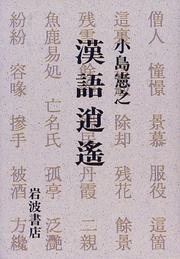 僧人 憧憬 景慕 服役 這箇
這裏 除却 残花 餘景
残雪 丹霞 二親
魚鹿易処 亡名氏 孤亭 泛灔
紛紛 容喙 摻手 被酒 方纔
小島憲之
漢語逍遙
岩波書店